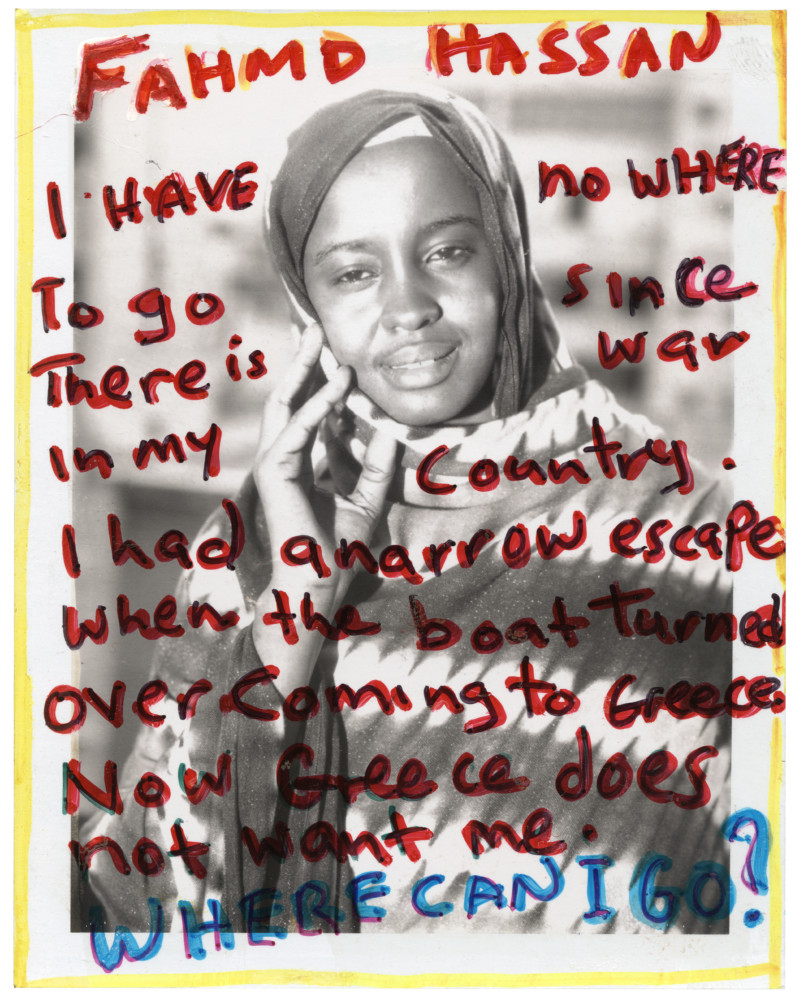 FAHMO HASSAN
I HAVE no WHERE
To go since
There is war
In my Country.
I had a narrow escape
when the boat turned
over coming to Greece.
Now Greece does
not want me.
WHERE CAN I GO?